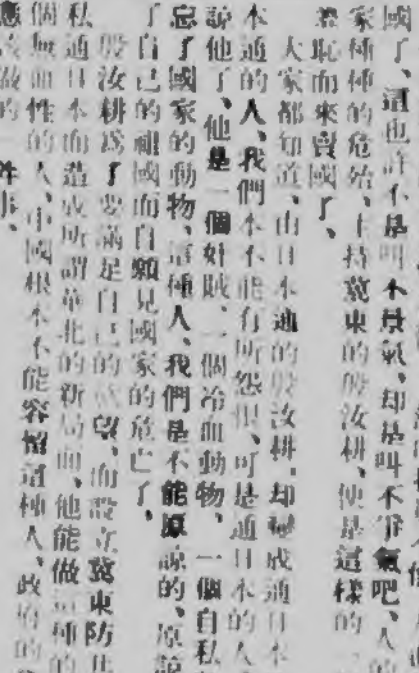 國了、這也許不是叫不景氣、却是叫不爭氣吧、人的
家種種的危殆、主持冀東的殷汝耕、便是這樣的
羞恥而來賣國了、
大家都知道、由日本通的殷汝耕、却變成通日本
本通的人、我們本不能有所怨恨、可是通日本的人
諒他了、他是一個奸賊、一個冷血動物、一個自私
忘了國家的動物、這種人、我們是不能原諒的、原諒
了自己的祖國而自願見國家的危亡了、
殷汝耕爲了要滿足自己的慾望、而設立冀東防共
私通日本而造成所謂華北的新局面、他能做這種的
個無血性的人、中國根本不能容留這種人、政府的
應該做的一件事、